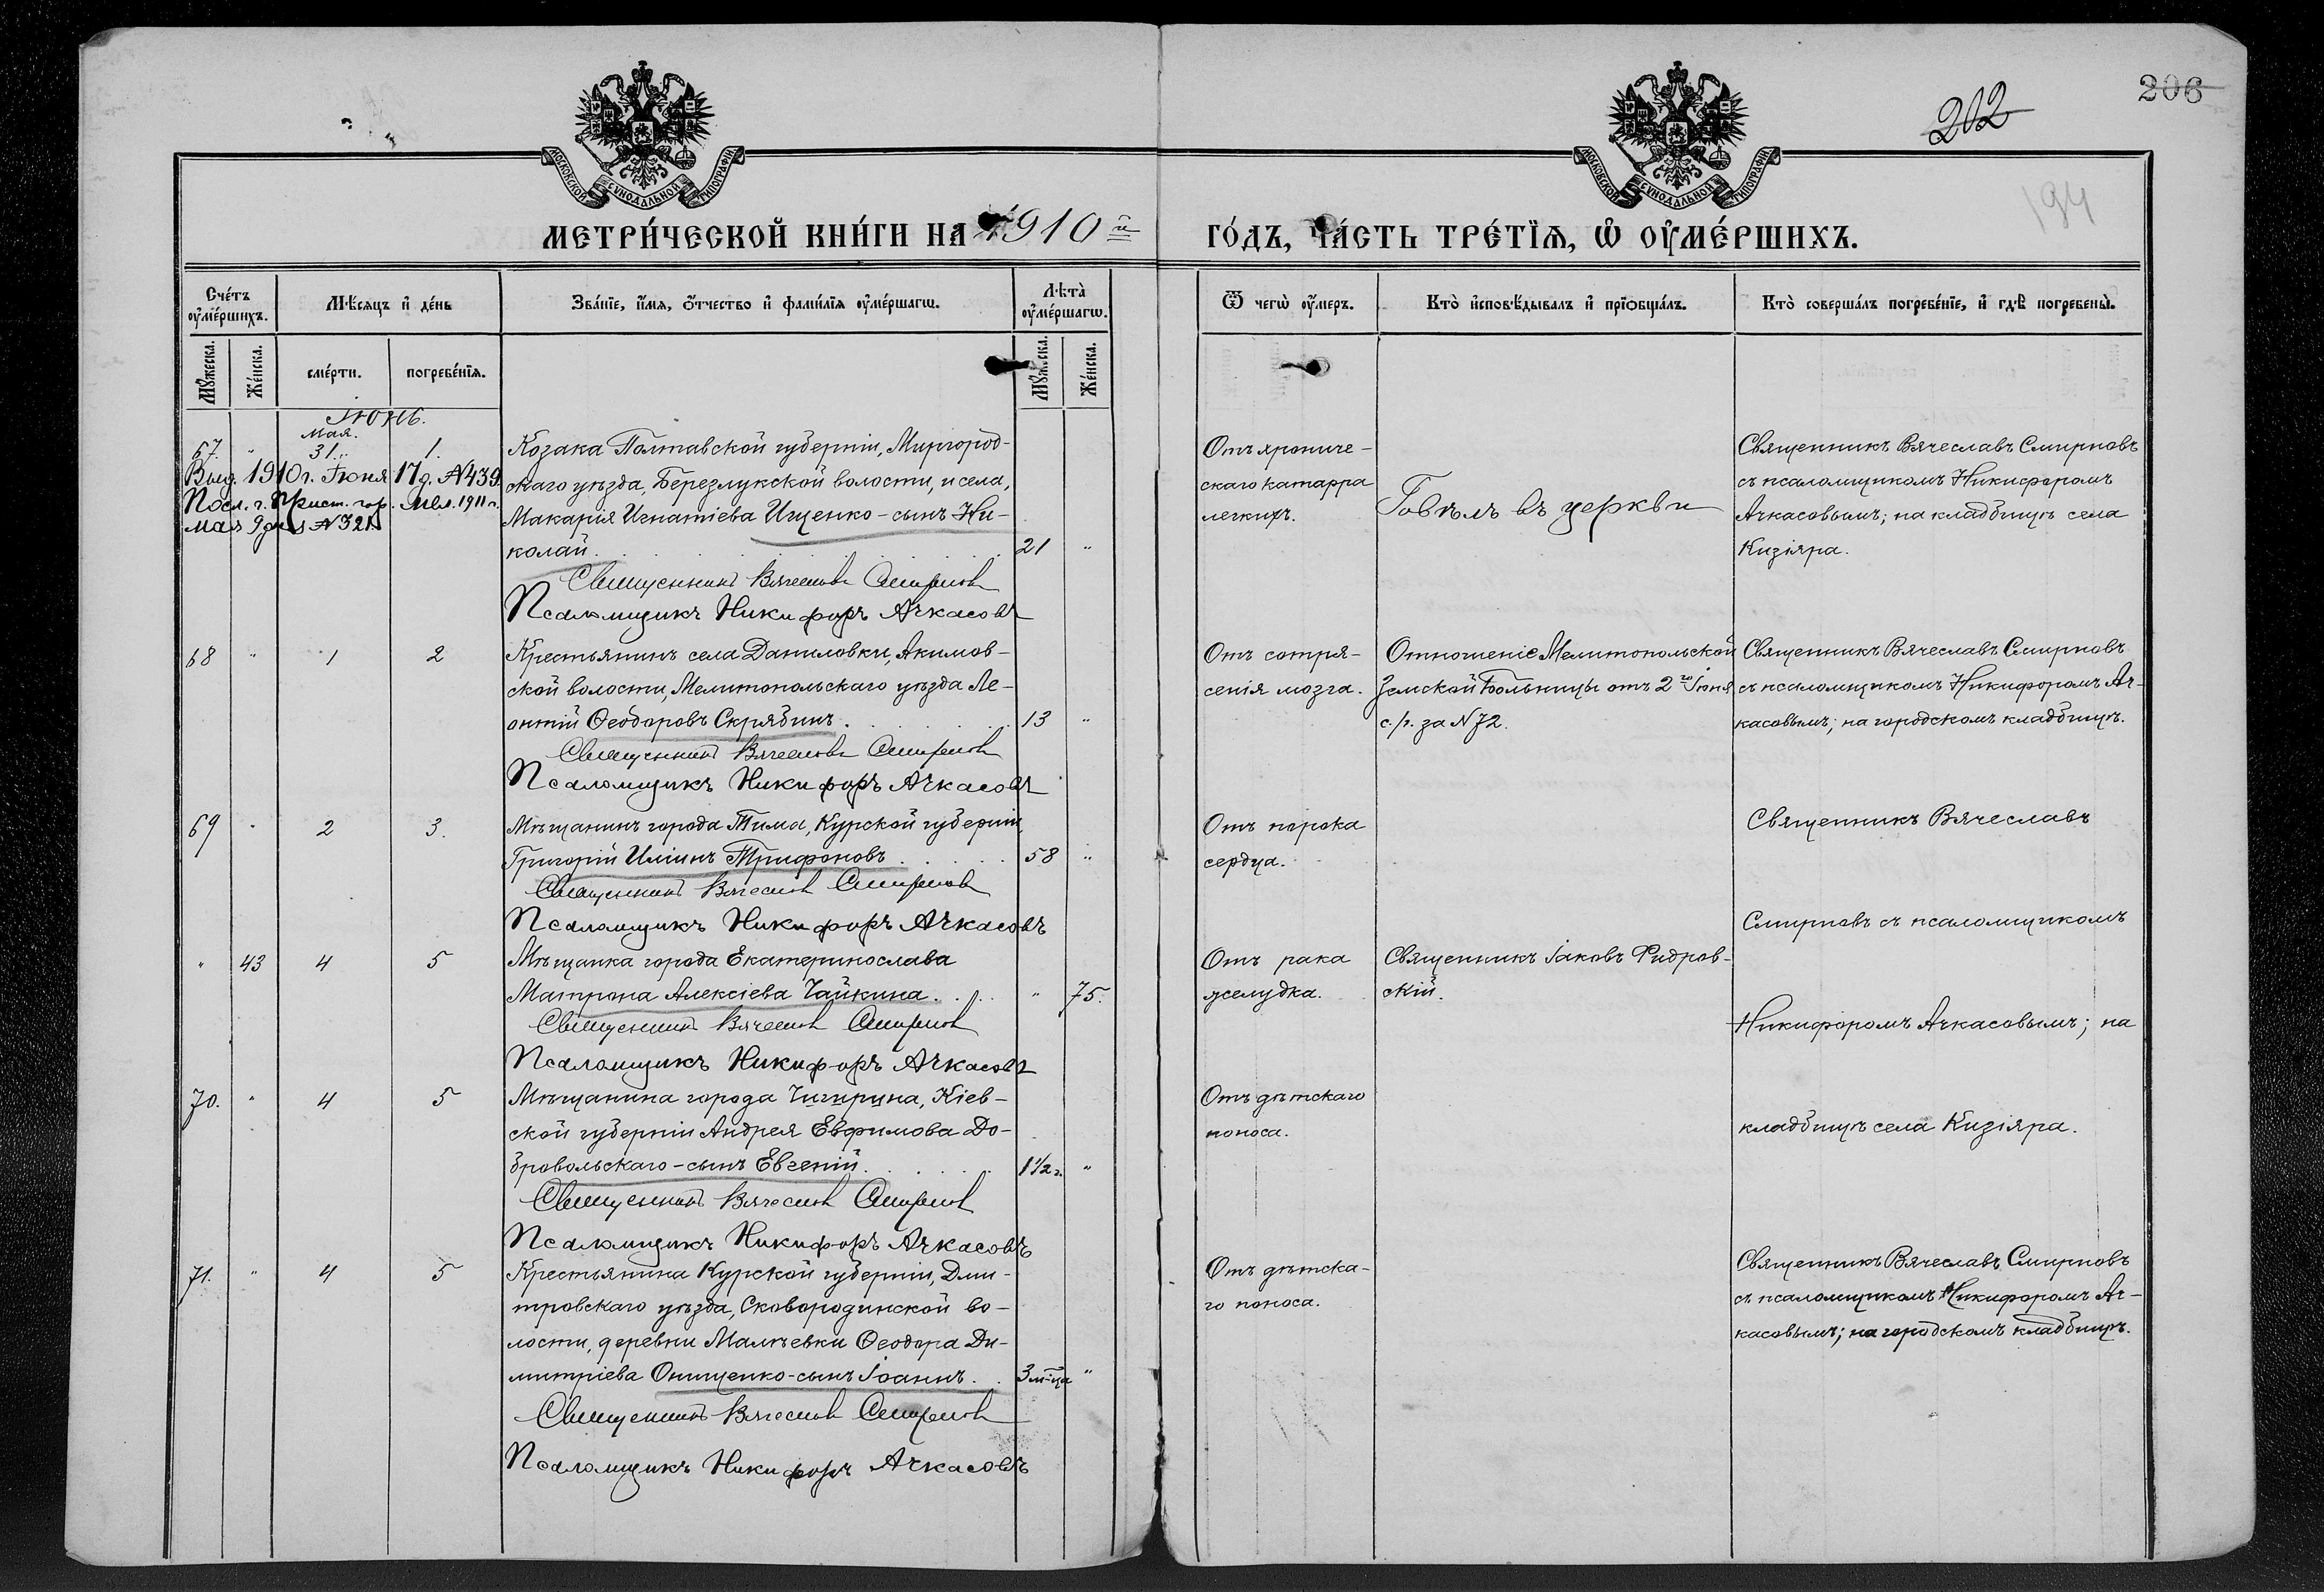 206
202
194
МОСКОВСКОЙ СѴНОДАЛЬНОЙ ТИПОГРАФІИ
МОСКОВСКОЙ СѴНОДАЛЬНОЙ ТИПОГРАФІИ
МЕТРИ́ЧЕСКОЙ КНИ́ГИ НА 1910й ГО́ДЪ, ЧА́СТЬ ТРЕ́ТІѦ, Ѡ҆ ОУ҆МЕ́РШИХЪ.
Сче́тъ оу҆ме́ршихъ.
Мѣ́сяцъ и҆ де́нь
Зва́нїе, и҆́мѧ, ѻ҆́тчество и҆ фами́лїѧ оу҆ме́ршагѡ.
Лѣ́та оу҆ме́ршагѡ.
Ѿ чегѡ̀ оу҆́меръ.
Кто̀ и҆сповѣ́дывалъ и҆ прїѡбща́лъ.
Кто̀ соверша́лъ погребе́нїе, и҆ гдѣ̀ погребены̀.
Мꙋ́жеска.
Же́нска.
сме́рти.
погребе́нїѧ.
Мꙋ́жеска.
Же́нска.
Іюнь.
Мая.
67. " 31. 1.
Выд. 1910 г. Іюня 17 д. №439.
Посл. г. Прист. гор. Мел. 1911 г.
мая 9 дня №321
Козака Полтавской губерніи, Миргород-
скаго уѣзда, Березлукской волости, и села,
Макарія Игнатіева Ищенко - сынъ Ни-
колай. 21 "
Священникъ Вячеславъ Смирновъ
Псаломщикъ Никифоръ Ачкасовъ
Отъ хрониче-
скаго катарра
легкихъ.
Говѣлъ въ церкви
Священникъ Вячеславъ Смирновъ
съ псаломщикомъ Никифоромъ
Ачкасовымъ; на кладбищѣ села
Кизіяра.
68 " 1 2
Крестьянинъ села Даниловки, Акимов-
ской волости, Мелитопольскаго уѣзда Ле-
онтій Ѳеодоровъ Скрябинъ. 13 "
Священникъ Вячеславъ Смирновъ
Псаломщикъ Никифоръ Ачкасовъ
Отъ сотря-
сенія мозга.
Отношеніе Мелитопольской
Земской Больницы отъ 2го Іюня
с./г. за №72.
Священникъ Вячеславъ Смирновъ
съ псаломщикомъ Никифоромъ Ач-
касовымъ; на городскомъ кладбищѣ.
69 " 2 3.
Мѣщанинъ города Тима, Курской губерніи,
Григорій Иліинъ Трифоновъ. 58 "
Священникъ Вячеславъ Смирновъ
Псаломщикъ Никифоръ Ачкасовъ
Отъ порока
сердца.
Священникъ Вячеславъ
Смирновъ съ псаломщикомъ
" 43 4 5
Мѣщанка города Екатеринослава
Матрона Алексіева Чайкина. " 75.
Священникъ Вячеславъ Смирновъ
Псаломщикъ Никифоръ Ачкасовъ
Отъ рака
желудка.
Священникъ Іаковъ Фидров-
скій.
Никифоромъ Ачкасовымъ; на
70. " 4 5
Мѣщанина города Чигирина, Кіев-
ской губерніи Андрея Евфимова До-
бровольскаго - сынъ Евгеній. 1 1/2 г. "
Священникъ Вячеславъ Смирновъ
Псаломщикъ Никифоръ Ачкасовъ
Отъ дѣтскаго
поноса.
кладбищѣ села Кизіяра.
71. " 4 5
Крестьянина Курской губерніи, Дми-
тровскаго уѣзда, Сковородинской во-
лости, деревни Малѣевки Ѳеодора Ди-
митріева Онищенко - сынъ Іоаннъ. 3 м-ца "
Священникъ Вячеславъ Смирновъ
Псаломщикъ Никифоръ Ачкасовъ
Отъ дѣтска-
го поноса.
Священникъ Вячеславъ Смирновъ
съ псаломщикомъ Никифоромъ Ач-
касовымъ; на городскомъ кладбищѣ.